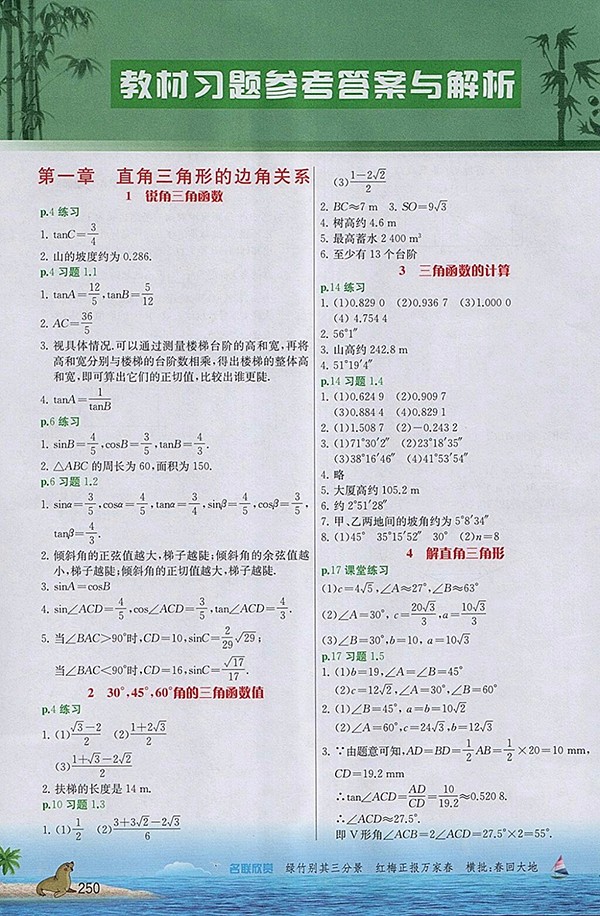 教材习题参考答案与解析
第一章 直角三角形的边角关系
1 锐角三角函数
p.4 练习
1. tanC=3/4
2. 山的坡度约为 0.286.
p.4 习题 1.1
1. tanA=12/5,tanB=5/12
2. AC=36/5
3. 视具体情况.可以通过测量楼梯台阶的高和宽,再将
高和宽分别与楼梯的台阶数相乘,得出楼梯的整体高
和宽,即可算出它们的正切值,比较出谁更陡.
4. tanA=1/tanB
p.6 练习
1. sinB=4/5,cosB=3/5,tanB=4/3.
2. △ABC 的周长为 60,面积为 150.
p.6 习题 1.2
1. sinα=3/5,cosα=4/5,tanα=3/4,sinβ=4/5,cosβ=3/5,
tanβ=4/3.
2. 倾斜角的正弦值越大,梯子越陡;倾斜角的余弦值越
小,梯子越陡;倾斜角的正切值越大,梯子越陡.
3. sinA=cosB
4. sin∠ACD=4/5,cos∠ACD=3/5,tan∠ACD=4/3.
5. 当∠BAC>90°时,CD=10,sinC=2/29√29;
当∠BAC<90°时,CD=16,sinC=√17/17.
2 30°,45°,60°角的三角函数值
p.4 练习
1. (1)(√3-2)/2 (2)(1+2√3)/2
(3)(1+√3-2√2)/2
2. 扶梯的长度是 14 m.
p.10 习题 1.3
1. (1)1/2 (2)(3+3√2-2√3)/6
(3)(1-2√2)/2
2. BC≈7 m 3. SO=9√3
4. 树高约 4.6 m
5. 最高蓄水 2 400 m³
6. 至少有 13 个台阶
3 三角函数的计算
p.14 练习
1. (1)0.829 0 (2)0.936 7 (3)1.000 0
(4) 4.754 4
2. 56°1″
3. 山高约 242.8 m
4. 51°19′4″
p.14 习题 1.4
1. (1)0.624 9 (2)0.909 7
(3)0.884 4 (4)0.829 1
2. (1)1.508 7 (2)-0.243 2
3. (1)71°30′2″ (2)23°18′35″
(3)38°16′46″ (4)41°53′54″
4. 略
5. 大厦高约 105.2 m
6. 约 2°51′28″
7. 甲、乙两地间的坡角约为 5°8′34″
8. (1)45° 35°15′52″ 30° (2)n=8
4 解直角三角形
p.17 课堂练习
(1)c=4√5,∠A≈27°,∠B≈63°
(2)∠A=30°, c=20√3/3, a=10√3/3
(3)∠B=30°,b=10, a=10√3
p.17 习题 1.5
1. (1)b=19,∠A=∠B=45°
(2)c=12√2,∠A=30°,∠B=60°
2. (1)∠B=45°, a=b=10√2
(2)∠A=60°,c=24√3,b=12√3
3. ∵由题意可知,AD=BD=1/2AB=1/2×20=10 mm,
CD=19.2 mm
∴tan∠ACD=AD/CD=10/19.2≈0.520 8.
∴∠ACD≈27.5°.
即 V 形角∠ACB=2∠ACD=27.5°×2=55°.
250
名联欣赏 绿竹别其三分景 红梅正报万家春 横批:春回大地